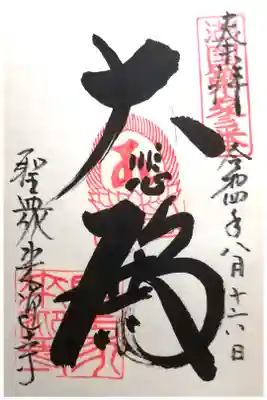 奉拝
令和四年八月十六日
大悲殿
聖衆来迎寺